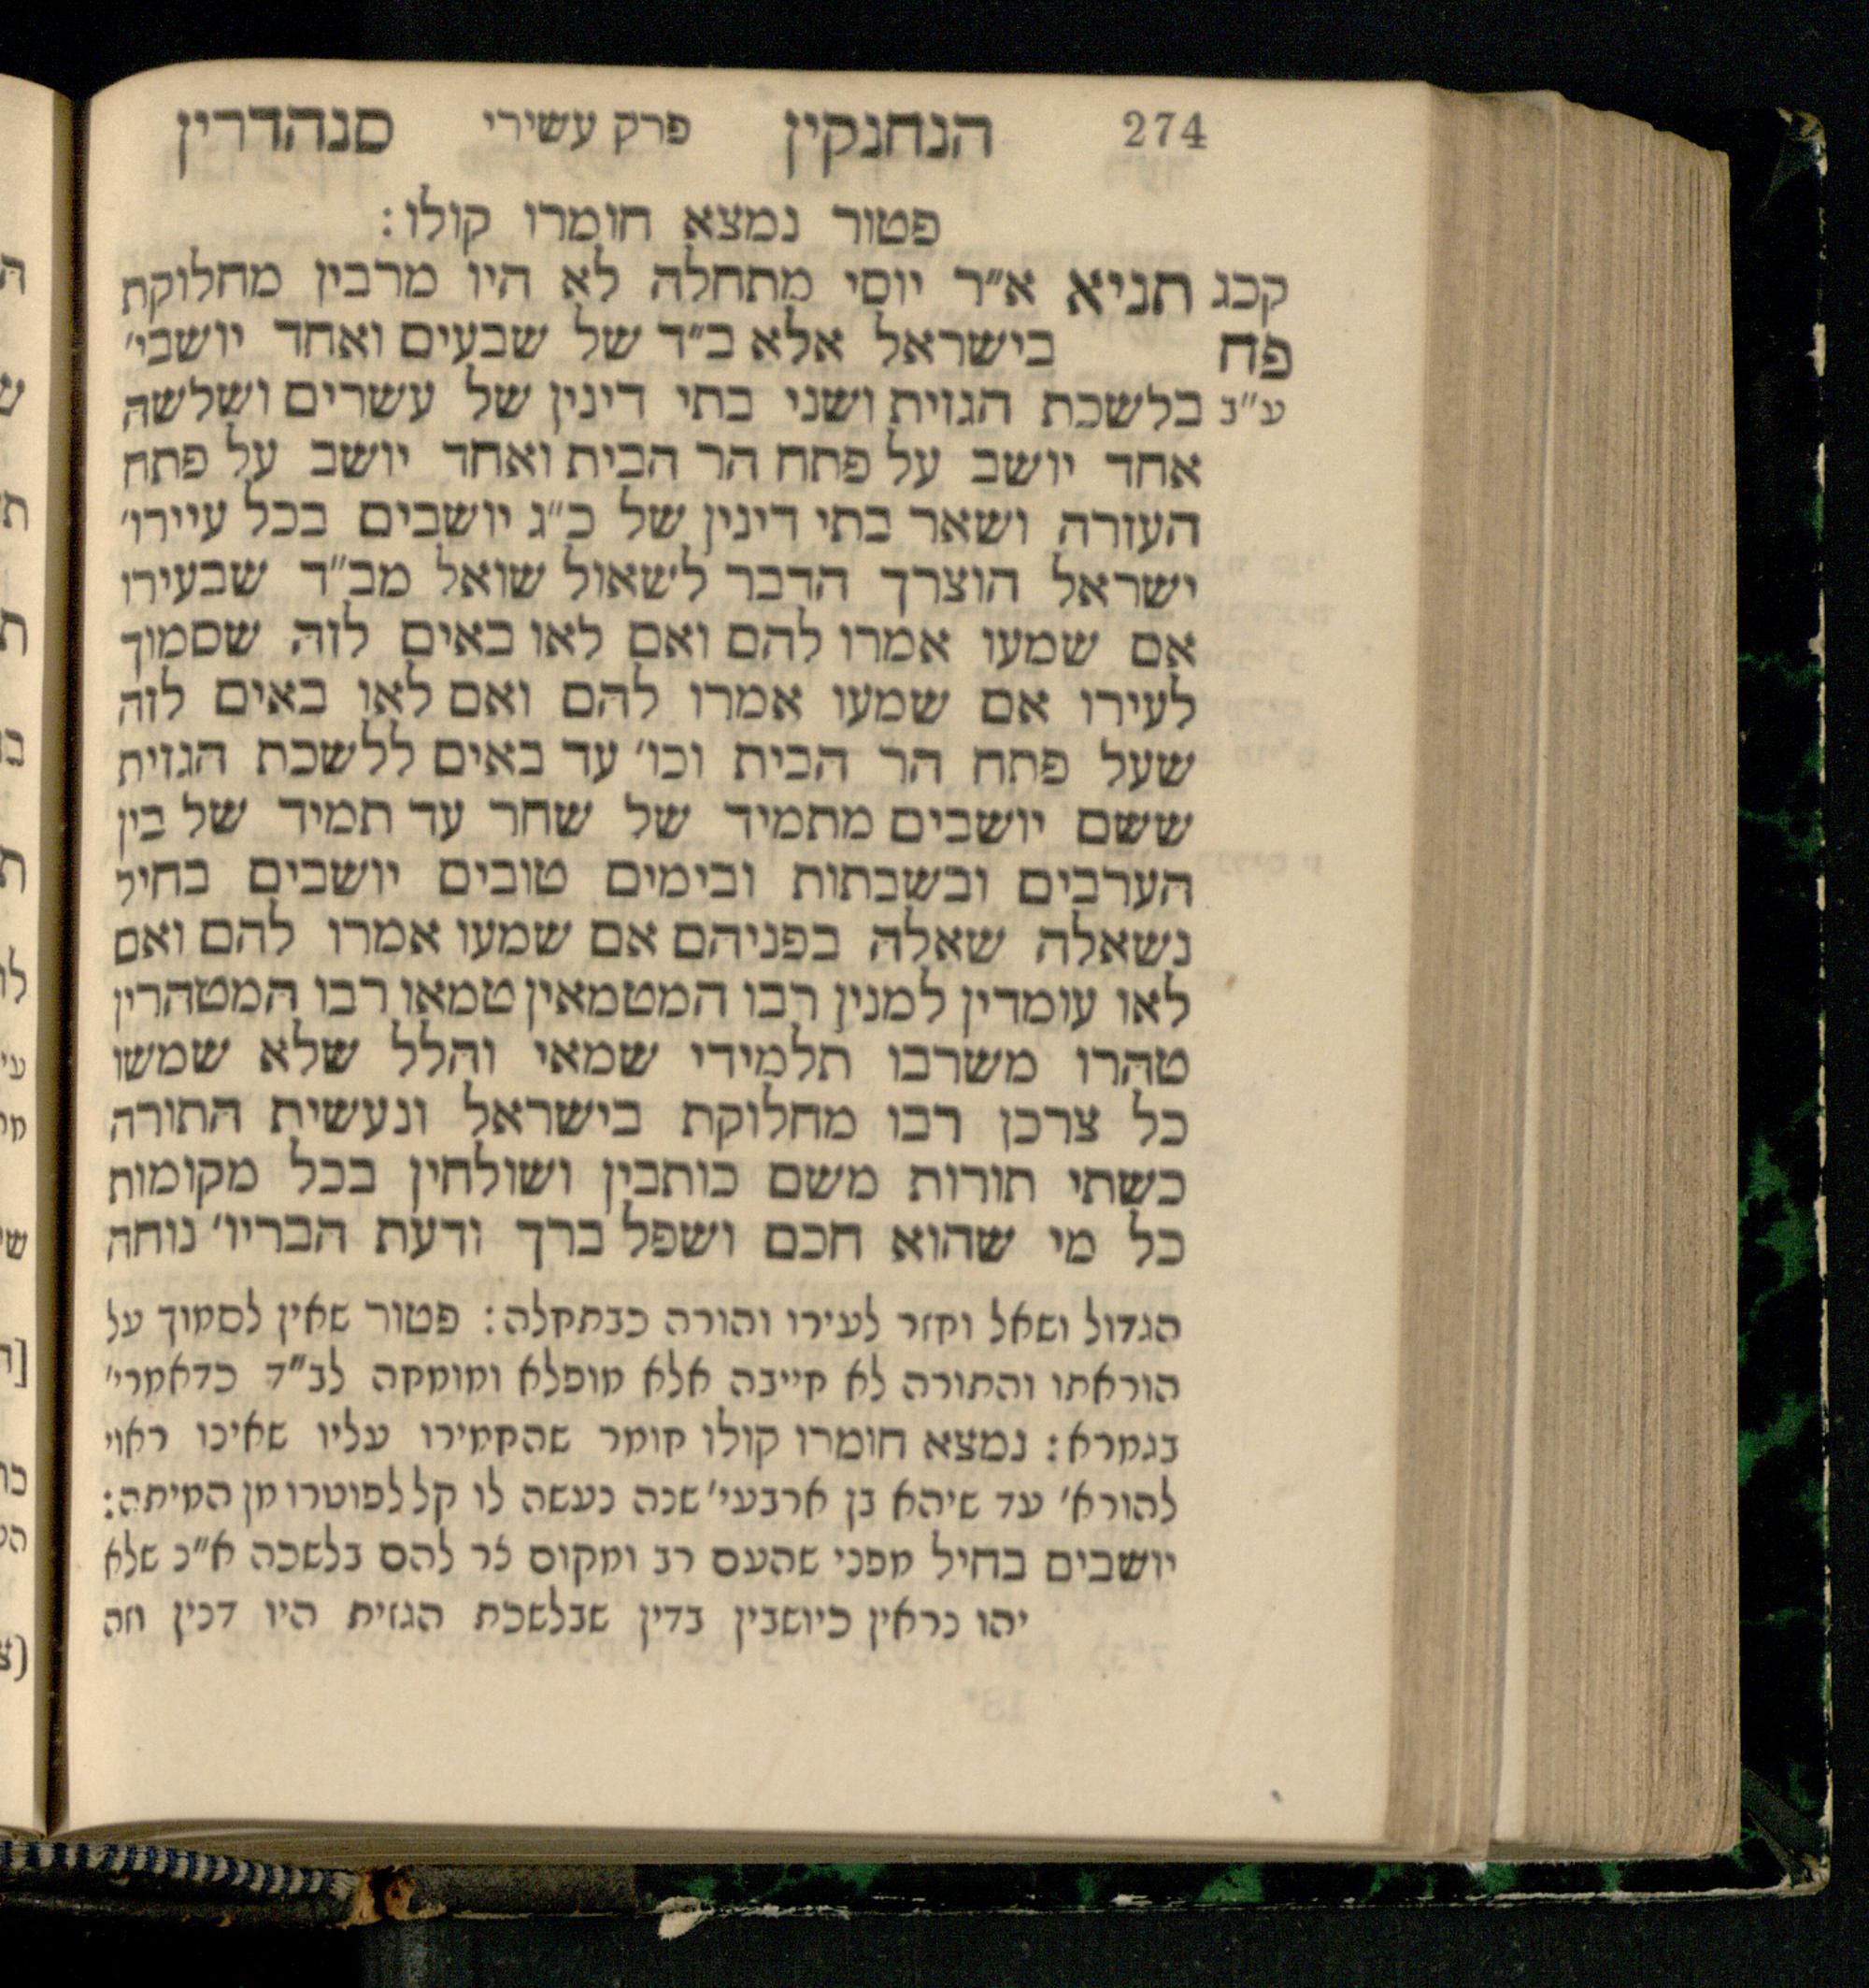 274 הנחנקין פרק עשירי סנהדרין
פטור נמצא חומרו קולו:
קכג תניא א״ר יוסי מתחלה לא היו מרבין מחלוקת
פח בישראל אלא ב״ד של שבעים ואחד יושבי׳
ע״ב בלשכת הגזית ושני בתי דינין של עשרים ושלשה
אחד יושב על פתח הר הבית ואחד יושב על פתח
העזרה ושאר בתי דינין של כ״ג יושבים בכל עיירו׳
ישראל הוצרך הדבר לשאול שואל מב״ד שבעירו
אם שמעו אמרו להם ואם לאו באים לזה שסמוך
לעירו אם שמעו אמרו להם ואם לאו באים לזה
שעל פתח הר הבית וכו׳ עד באים ללשכת הגזית
ששם יושבים מתמיד של שחר עד תמיד של בין
הערבים ובשבתות ובימים טובים יושבים בחיל
נשאלה שאלה בפניהם אם שמעו אמרו להם ואם
לאו עומדין למנין רבו המטמאין טמאו רבו המטהרין
טהרו משרבו תלמידי שמאי והלל שלא שמשו
כל צרכן רבו מחלוקת בישראל ונעשית התורה
כשתי תורות משם כותבין ושולחין בכל מקומות
כל מי שהוא חכם ושפל ברך ודעת הבריו׳ נוחה
הגדול ושאל וחזר לעירו והורה כבתחלה: פטור שאין לסמוך על
הוראתו והתורה לא חייבה אלא מופלא ומומחה לב״ד כדאמרי׳
בגמרא: נמצא חומרו קולו חומר שהחמירו עליו שאינו ראוי
להורא׳ עד שיהא בן ארבעי׳ שנה נעשה לו קל לפוטרו מן המיתה:
יושבים בחיל מפני שהעם רב ומקום צר להם בלשכה א״נ שלא
יהו נראין כיושבין בדין שבלשכת הגזית היו דנין וזה